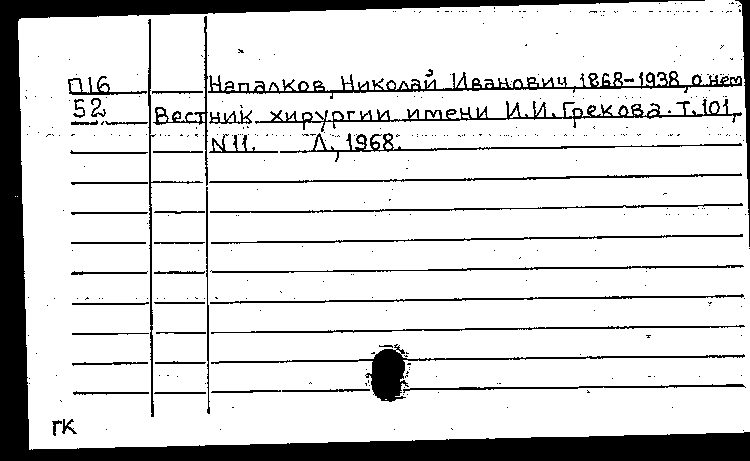 П16 Напалков, Николай Иванович, 1868-1938, о нем
52 Вестник хирургии имени И.И. Грекова. Т. 101,
N 11. Л., 1968.
ГК